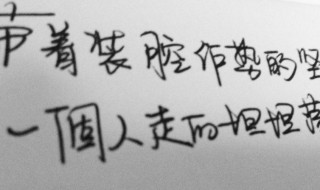 带着装腔作势的坚
一個人走的坦坦荡